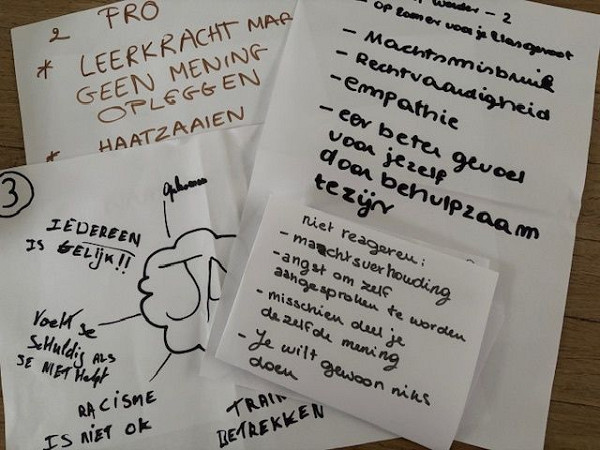 2 FRO
* LEERKRACHT MAG
GEEN MENING
OPLEGGEN
* HAATZAAIEN
worden - 2
- opkomen voor je klasgenoot
- Machtsmisbruik
- Rechtvaardigheid
- empathie
- een beter gevoel
voor jezelf
door behulpzaam
te zijn
3
opkomen
IEDEREEN
IS GELIJK!!
JA
Voelt je
schuldig als
je niet helpt
RACISME
IS NIET OK
BETREKKEN
niet reageren:
- machtsverhouding
- angst om zelf
aangesproken te worden
- misschien deel je
dezelfde mening
- Je wilt gewoon niks
doen